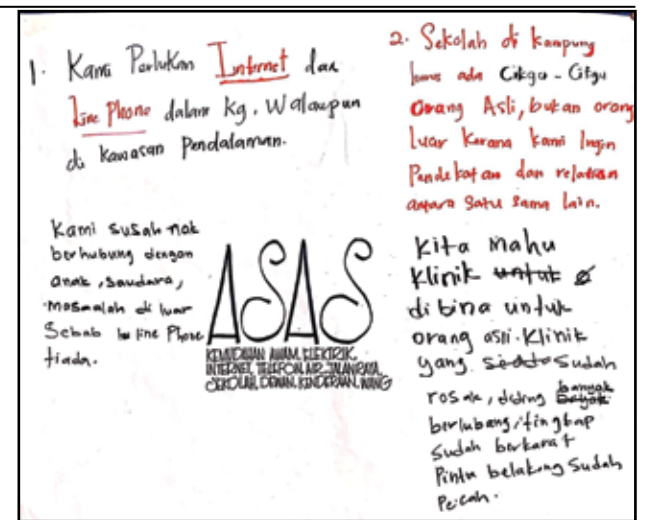 1. Kami Perlukan Internet dan
line Phone dalam Kg. Walaupun
di Kawasan Pendalaman.
Kami susah nak
berhubung dengan
anak, saudara,
masaalah di luar
Sebab line Phone
tiada.
ASAS
KEMUDAHAN AWAM, ELEKTRIK,
INTERNET, TELEFON, AIR, JALANRAYA,
SEKOLAH, DEWAN, KENDERAAN, WANG
2. Sekolah di kampung
harus ada Cikgu - Cikgu
Orang Asli, bukan orang
luar Kerana kami Ingin
Pendekatan dan relation
antara Satu Sama lain.
Kita Mahu
Klinik untuk
dibina untuk
orang asli. Klinik
yang sudah
rosak, dinding banyak
berlubang, tingkap
Sudah berkarat
Pintu belakang Sudah
Pecah.